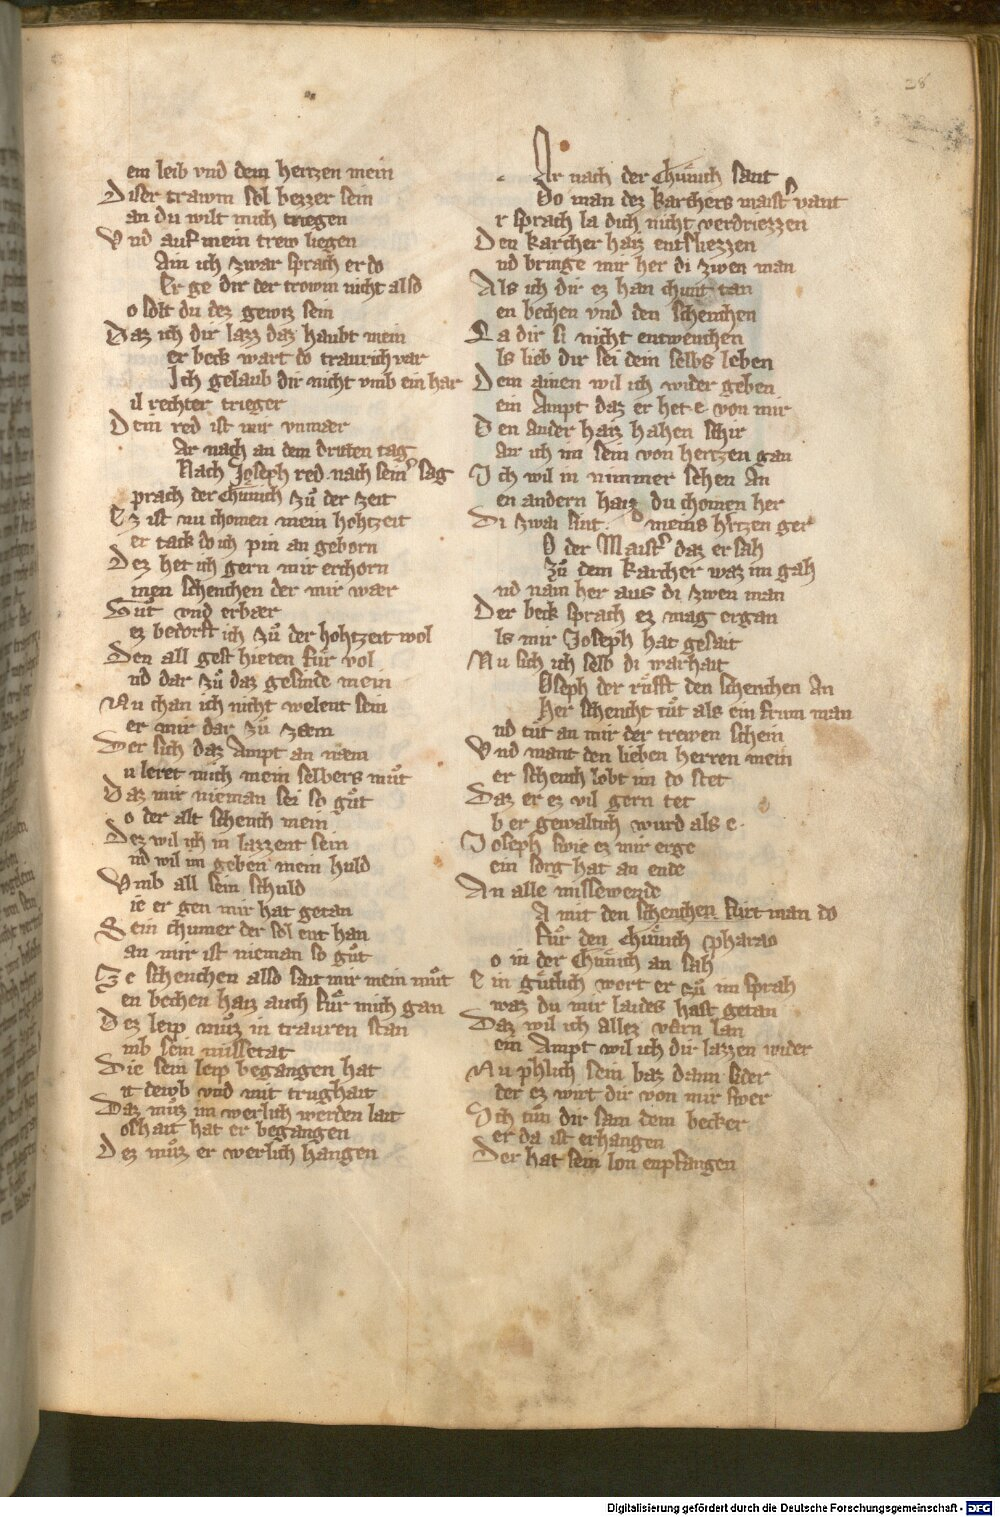 28
em leib vnd dem hertzen mein
Diser trawm sol bezzer sein
an du wilt mich triegen
Vnd auf mein trew liegen
Ain ich zwar sprach er do
Er ge dir der trowm nicht also
o solt du dez gewiz sein
Daz ich dir lazz daz haubt mein
er beck wart do traurich var
Ich gelaub dir nicht vmb ein har
il rechter trieger
Dein red ist mir vnmær
Ar nach an dem dritten tag
Nach Joseph red nach seinʾ sag
prach der Chünich zů der zeit
Ez ist nu chomen mein hohtzeit
er tack do ich pin an geborn
Dez het ich gern mir erchorn
inen schenchen der mir wær
Gůt vnd erbær
ez bedorft ich zů der hohtzeit wol
Den all gest hieten für vol
nd dar zů daz gesinde mein
Nu chan ich nicht welent sein
er mir dar zů zæm
Der sich daz Ampt an næm
u leret mich mein selbers můt
Daz mir nieman sei so gůt
o der alt schench mein
Dez wil ich in lazzent sein
nd wil im geben mein huld
Vmb all sein schuld
ie er gen mir hat getan
Sein chumer der sol ent han
an mir ist nieman so gůt
Ze schenchen also sait mir mein můt
en bechen haiz auch für mich gan
Dez leip můz in trauren stan
mb sein missetat
Die sein leip begangen hat
it dewb vnd mit trughait
Daz můz im werlich werden lait
oshait hat er begangen
Dez můz er werlich hangen
Ar nach der Chünich sant
Do man dez karchers maistʾ vant
r sprach la dich nicht verdriezzen
Den karcher haiz entsliezzen
nd bringe mir her di zwen man
Als ich dir ez han chunt tan
en bechen vnd den schenchen
La dir si nicht entwenchen
ls lieb dir sei dein selbs leben
Dem ainen wil ich wider geben
ein Ampt daz er het e von mir
Den ander haiz hahen schir
an ich im sein von hertzen gan
Ich wil in nimmer sehen An
en andern haiz du chomen her
Di zwai sint meins hertzen ger
O der Maistʾ daz ersah
Zů dem karcher waz im gah
nd nam her aus di zwen man
Der beck sprach ez mag ergan
ls mir Joseph hat gesait
Nu sich ich selb di warhait
Oseph der růfft den schenchen An
Her schencht tůt als ein frum man
nd tůt an mir der trewen schein
Vnd mant den lieben herren mein
er schench lobt im do stet
Daz er ez vil gern tet
b er gewaltich wurd als e
Joseph swie ez mir erge
ein sorg hat an ende
An alle missewende
A mit den schenchen fürt man do
Für den Chünich pharao
o in der Chünich an sah
Sein gütlich wort er zů im sprah
waz du mir laides hast getan
Daz wil ich allez varn lan
ein Ampt wil ich dir lazzen wider
Nu phlich sein baz dann sider
der ez wirt dir von mir swer
Ich tůn dir sam dem becker
er da ist erhangen
Der hat sein lon enpfangen
Digitalisierung gefördert durch die Deutsche Forschungsgemeinschaft - DFG